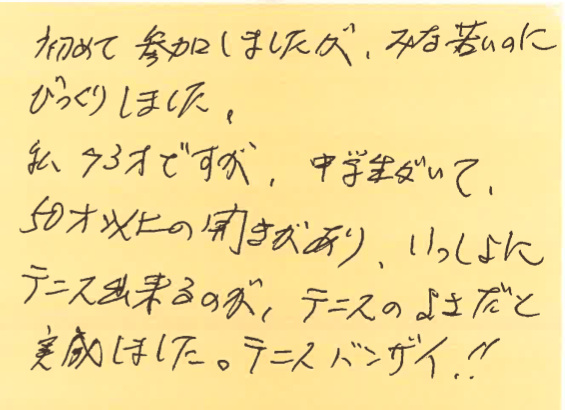 初めて参加しましたが、みな若いのに
びっくりしました。
私、73才ですが、中学生がいて、
50才以上の開きがあり、いっしょに
テニス出来るのが、テニスのよさだと
実感しました。テニスバンザイ!!